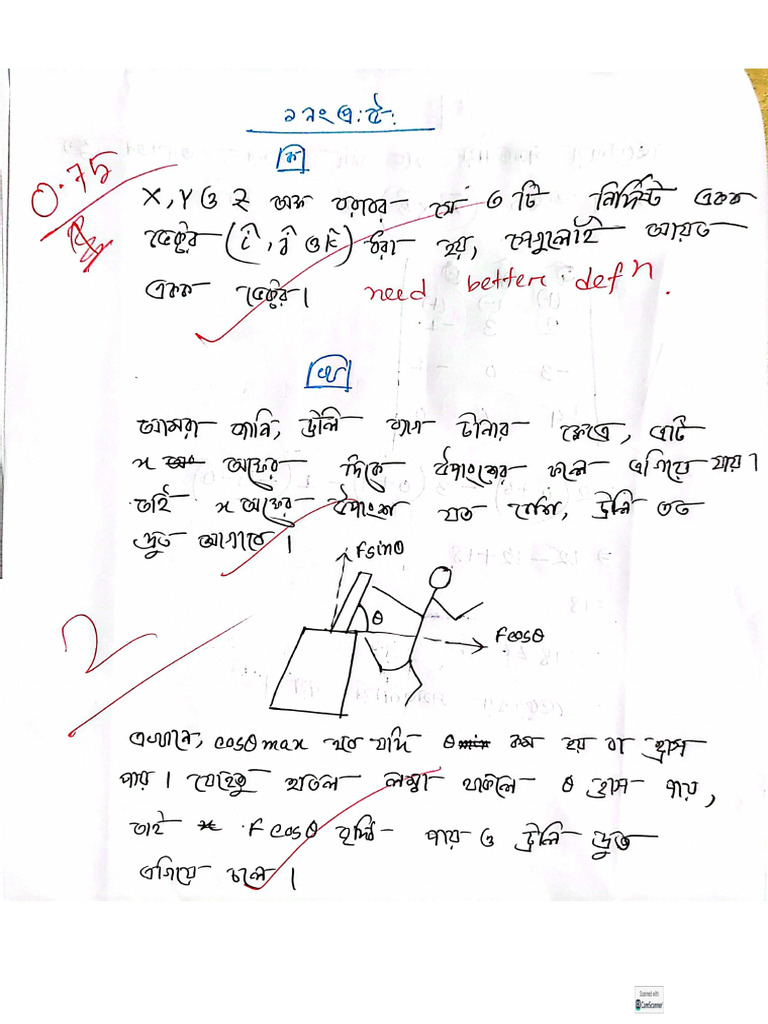 ১ নং প্র: উ:
ক
0.75
X, Y ও Z অক্ষ বরাবর যে ৩ টি নির্দিষ্ট একক
ভেক্টর (î, ĵ ও k̂) ধরা হয়, সেগুলোই আয়ত
একক ভেক্টর। need better defⁿ.
খ
আমরা জানি, ট্রলি ব্যাগ টানার ক্ষেত্রে, এটি
x অক্ষের দিকে উপাংশের ফলে এগিয়ে যায়।
তাই x অক্ষের উপাংশ যত বেশি, ট্রলি তত
দ্রুত আগাবে।
Fsinθ
θ
Fcosθ
2
এখানে, cosθ max হবে যদি θ কম হয় বা হ্রাস
পায়। যেহেতু হাতল লম্বা থাকলে θ হ্রাস পায়,
তাই F cosθ বৃদ্ধি পায় ও ট্রলি দ্রুত
এগিয়ে চলে।
Scanned with
CamScanner